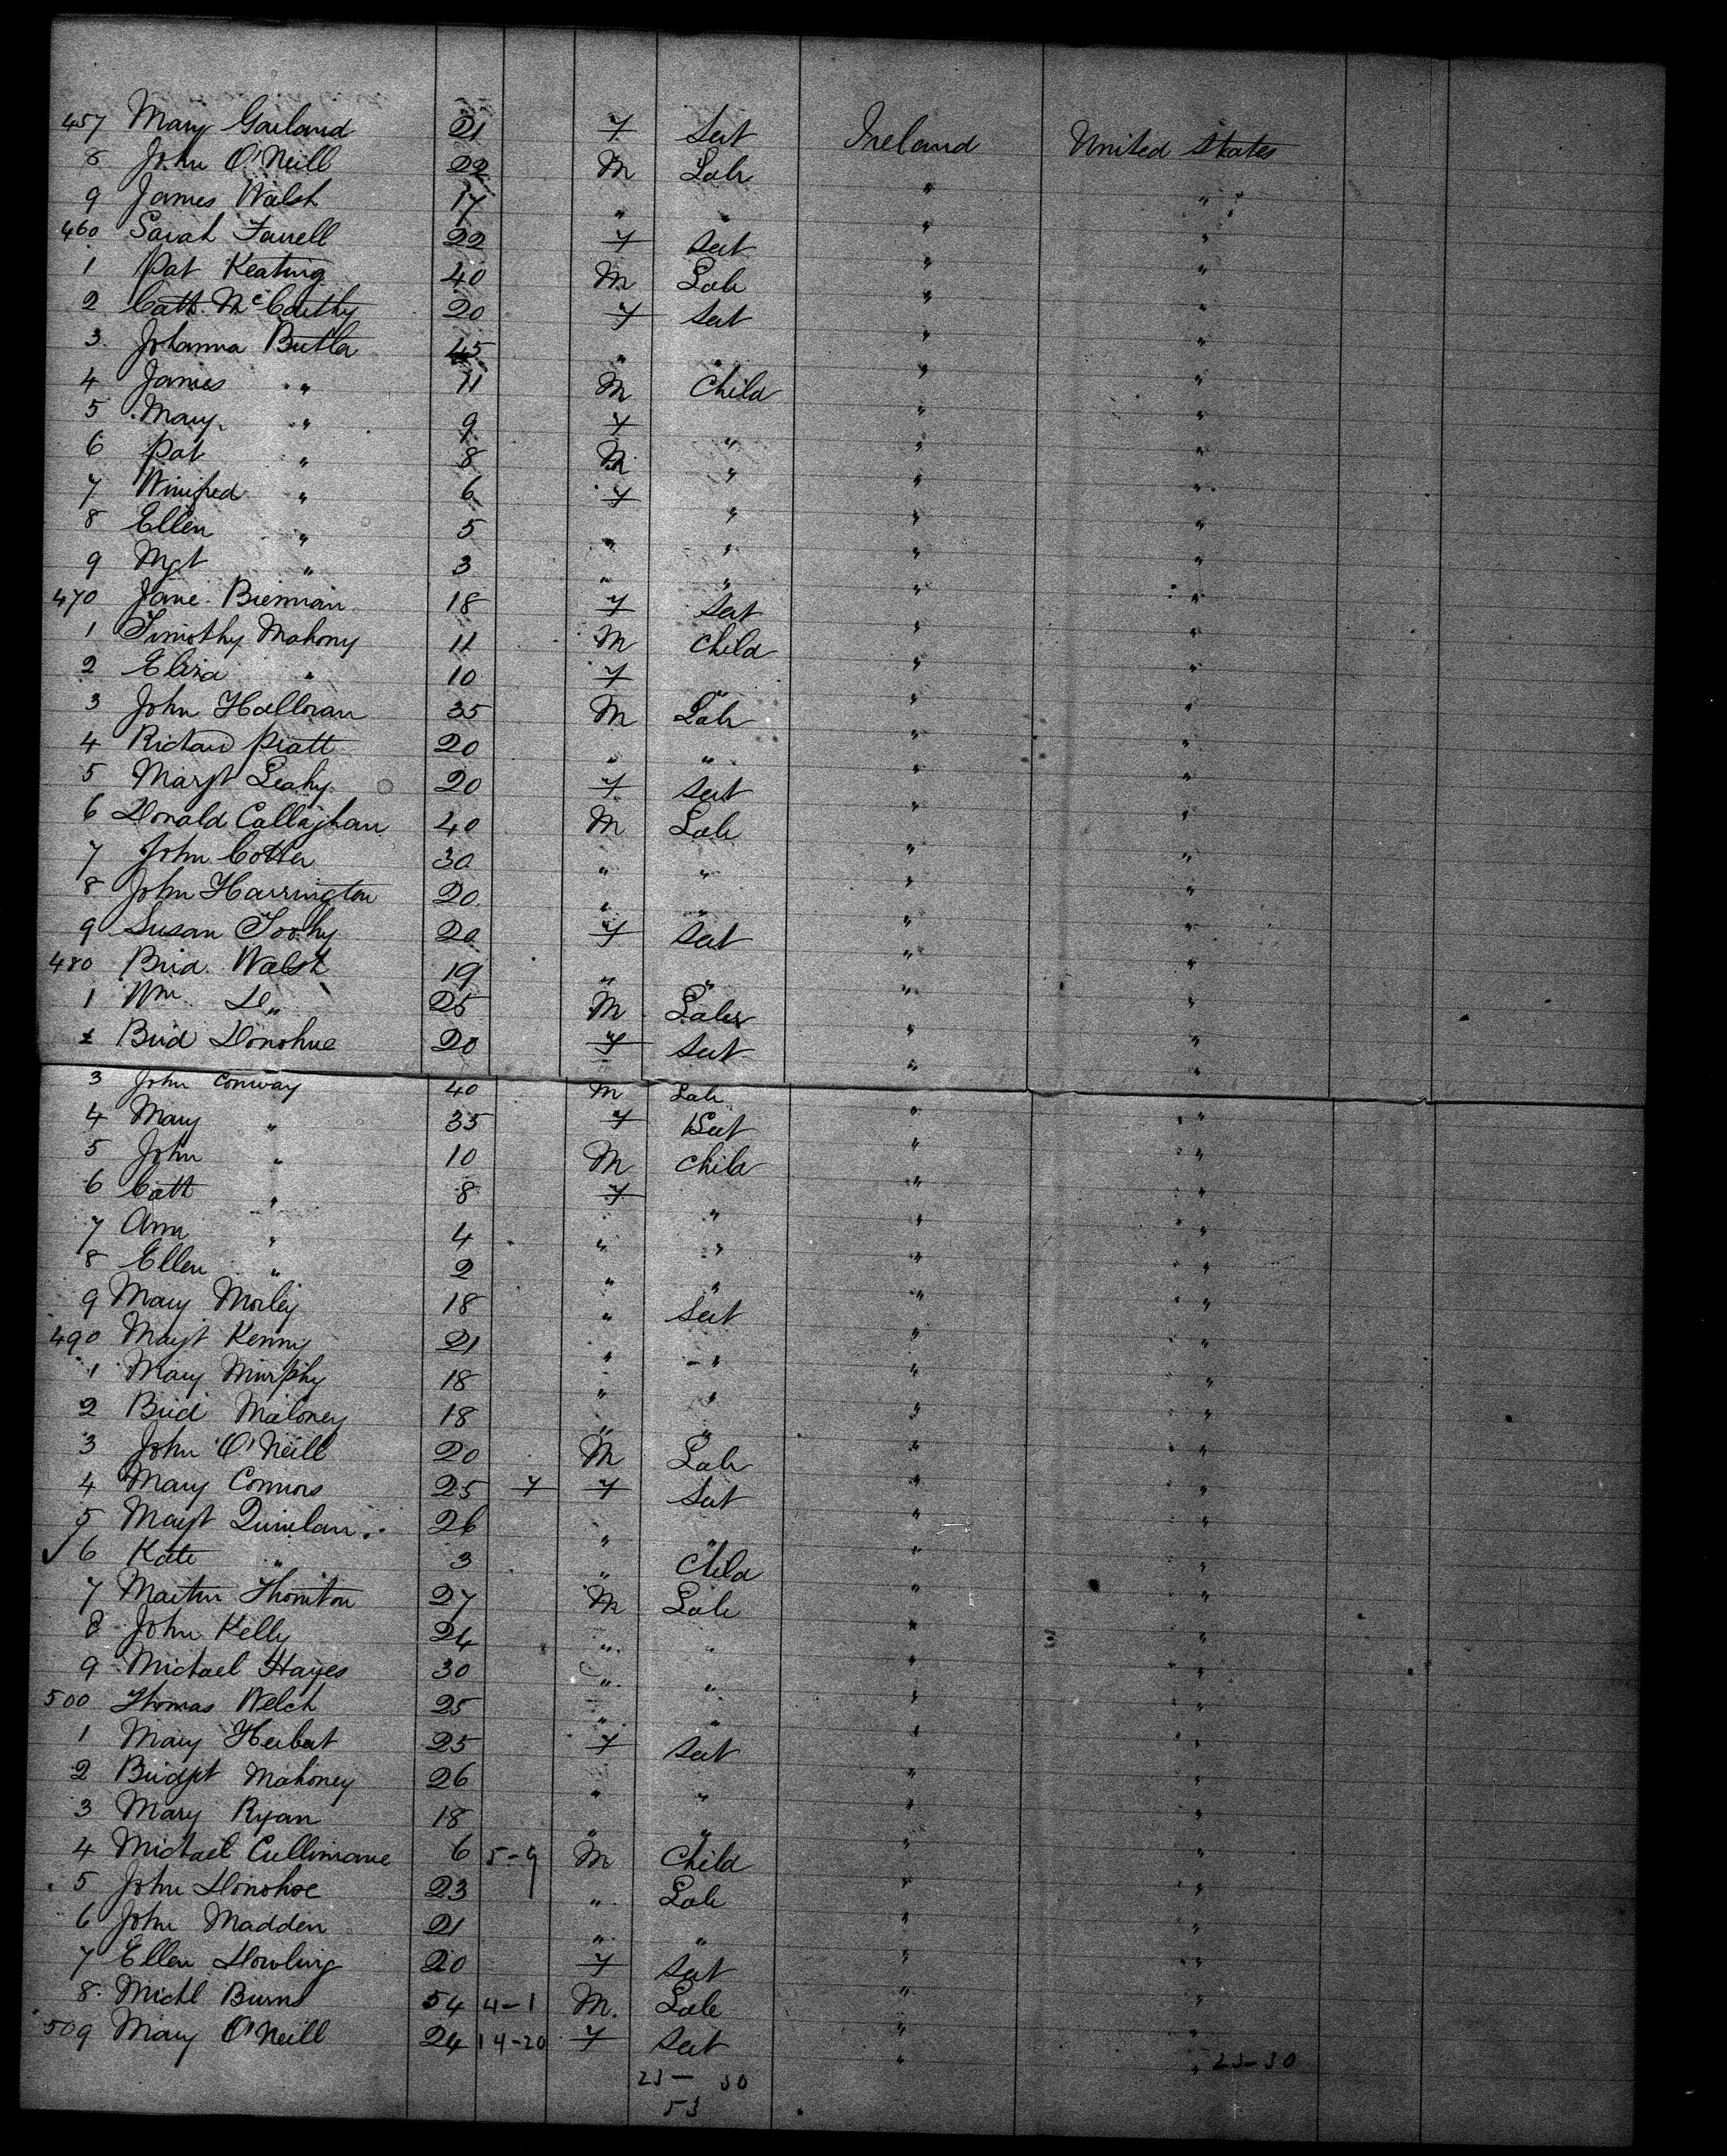 457 Mary Garland 21 F Sert Ireland United States
8 John O'Neill 22 M Labr " "
9 James Walsh 17 " " " "
460 Sarah Farrell 22 F Sert " "
1 Pat Keating 40 M Labr " "
2 Cath. McCarthy 20 F Sert " "
3 Johanna Butler 45 " " " "
4 James " 11 M Child " "
5 Mary " 9 F " " "
6 Pat " 8 M " " "
7 Winifred " 6 F " " "
8 Ellen " 5 " " " "
9 Mgt " 3 " " " "
470 Jane Brennan 18 F Sert " "
1 Timothy Mahony 11 M Child " "
2 Eliza " 10 F " " "
3 John Halloran 35 M Labr " "
4 Richard Pratt 20 " " " "
5 Margt Leahy 20 F Sert " "
6 Donald Callaghan 40 M Labr " "
7 John Cotter 30 " " " "
8 John Harrington 20 " " " "
9 Susan Toohy 20 F Sert " "
480 Brid. Walsh 19 " " " "
1 Wm Do " 25 M Labr " "
2 Brid Donohue 20 F Sert " "
3 John Conway 40 M Labr " "
4 Mary " 35 F Sert " "
5 John " 10 M Child " "
6 Cath " 8 F " " "
7 Ann " 4 " " " "
8 Ellen " 2 " " " "
9 Mary Morley 18 " Sert " "
490 Margt Kenny 21 " " " "
1 Mary Murphy 18 " " " "
2 Brid Maloney 18 " " " "
3 John O'Neill 20 M Labr " "
4 Mary Connors 25 7 F Sert " "
5 Margt Quinlan 26 " " " "
✓ 6 Kate " 3 " Child " "
7 Martin Thornton 27 M Labr " "
8 John Kelly 24 " " " "
9 Michael Hayes 30 " " " "
500 Thomas Welch 25 " " " "
1 Mary Herbert 25 F Sert " "
2 Bridgt Mahoney 26 " " " "
3 Mary Ryan 18 " " " "
4 Michael Cullinane 6 5-9 M Child " "
5 John Donohoe 23 " Labr " "
6 John Madden 21 " " " "
7 Ellen Dowling 20 F Sert " "
8 Michl Burns 54 4-1 M. Labr " "
509 Mary O'Neill 24 14-20 F Sert " "
23-30
23 - 30
53